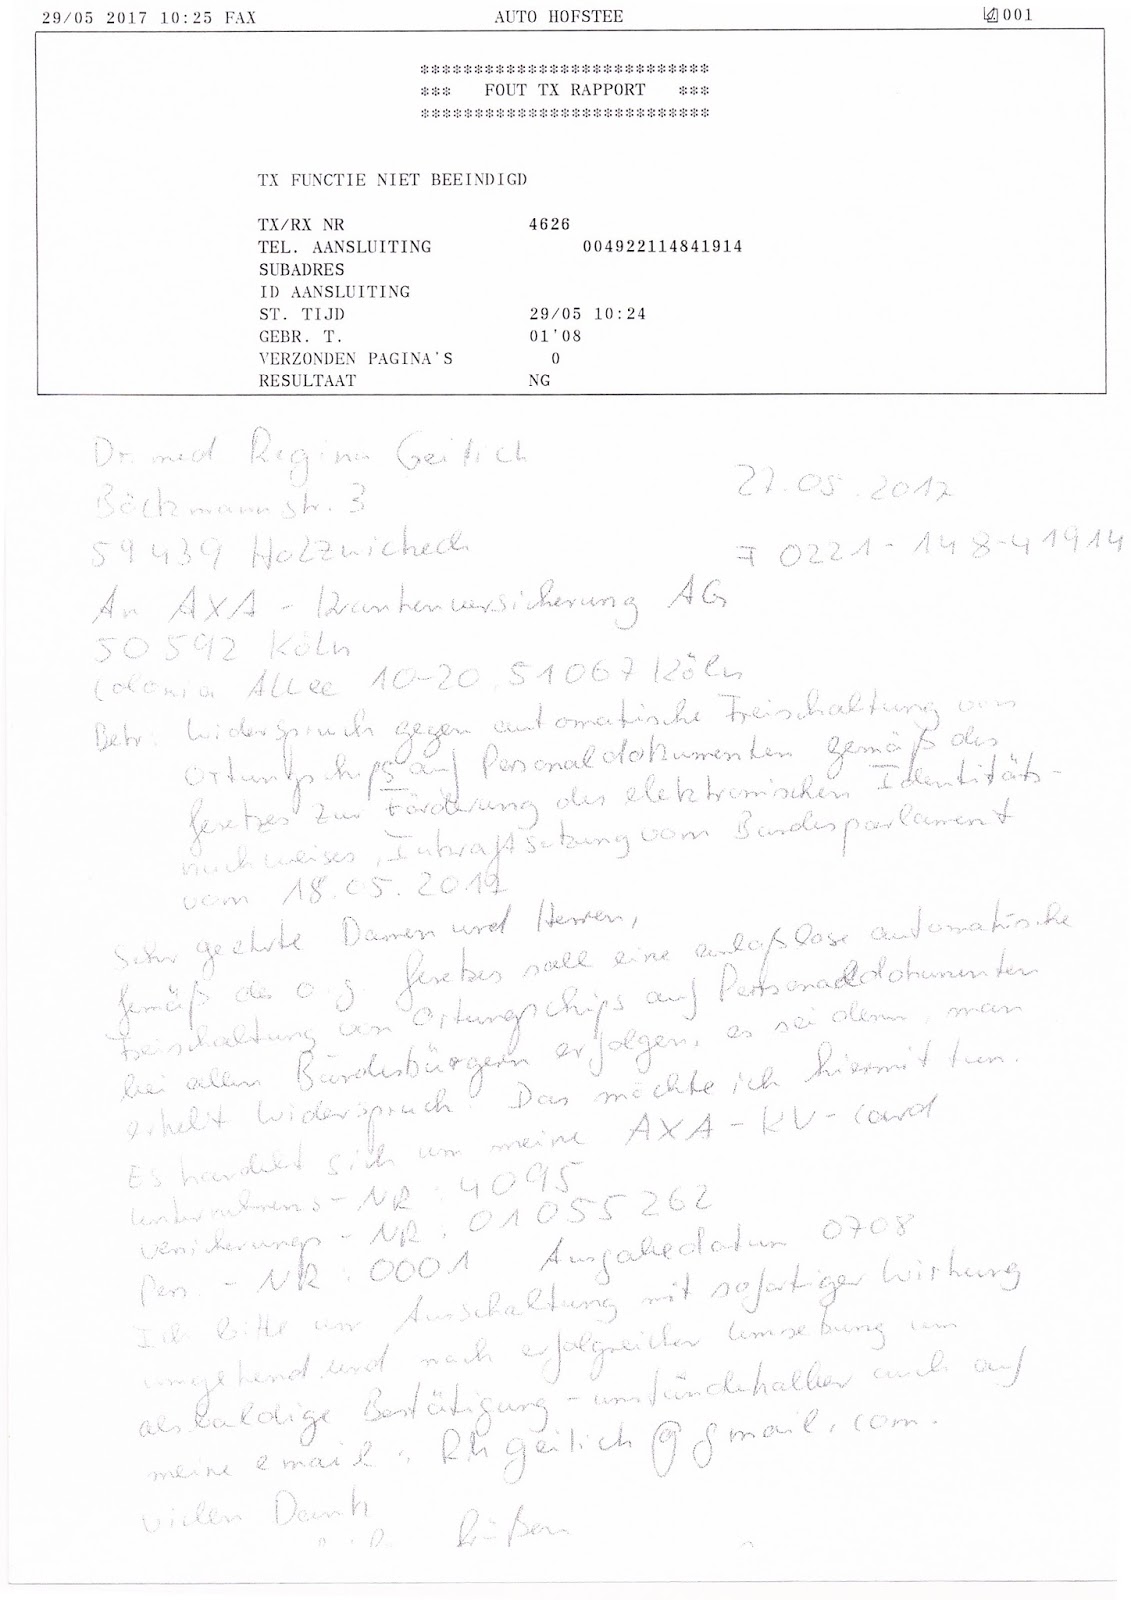 29/05 2017 10:25 FAX AUTO HOFSTEE 001
***************************
*** FOUT TX RAPPORT ***
***************************
TX FUNCTIE NIET BEEINDIGD
TX/RX NR 4626
TEL. AANSLUITING 004922114841914
SUBADRES
ID AANSLUITING
ST. TIJD 29/05 10:24
GEBR. T. 01'08
VERZONDEN PAGINA'S 0
RESULTAAT NG
Dr. med Regina Geitlich
27.05.2017
Böckmannstr. 3
59439 Holzwickede
F 0221-148-41914
An AXA - Krankenversicherung AG
50592 Köln
Colonia Allee 10-20, 51067 Köln
Betr: Widerspruch gegen automatische Freischaltung von
Ortungschips auf Personaldokumenten gemäß des
Gesetzes zur Förderung des elektronischen Identitäts-
nachweises, Inkraftsetzung vom Bundesparlament
vom 18.05.2017
Sehr geehrte Damen und Herren,
gemäß des o.g. Gesetzes soll eine anlaßlose automatische
Freischaltung von Ortungschips auf Personaldokumenten
bei allen Bundesbürgern erfolgen, es sei denn, man
erhebt Widerspruch. Das möchte ich hiermit tun.
Es handelt sich um meine AXA-KV-card
Unternehmens-NR: 4095
Versicherungs-NR: 01055262
Pers.-NR: 0001 Ausgabedatum 0708
Ich bitte um Ausschaltung mit sofortiger Wirkung
umgehend und nach erfolgreicher Umsetzung um
alsbaldige Bestätigung - umständehalber auch auf
meine email: Rhgeitlich@gmail.com.
Vielen Dank
Grüßen